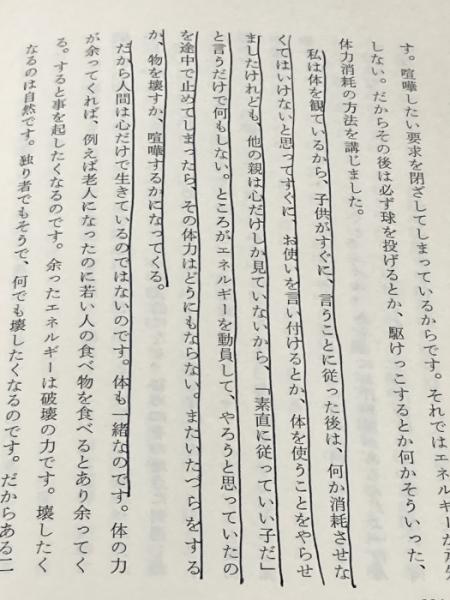 す。喧嘩したい要求を閉ざしてしまっているからです。それではエネルギーが
しない。だからその後は必ず球を投げるとか、駆けっこするとか何かそういった、
体力消耗の方法を講じました。
私は体を観ているから、子供がすぐに、言うことに従った後は、何か消耗させな
くてはいけないと思ってすぐに、お使いを言い付けるとか、体を使うことをやらせ
ましたけれども、他の親は心だけしか見ていないから、「素直に従っていい子だ」
と言うだけで何もしない。ところがエネルギーを動員して、やろうと思っていたの
を途中で止めてしまったら、その体力はどうにもならない。またいたづらをする
か、物を壊すか、喧嘩するかになってくる。
だから人間は心だけで生きているのではないのです。体も一緒なのです。体の力
が余ってくれば、例えば老人になったのに若い人の食べ物を食べるとあり余ってく
る。すると事を起したくなるのです。余ったエネルギーは破壊の力です。壊したく
なるのは自然です。独り者でもそうで、何でも壊したくなるのです。だからある二